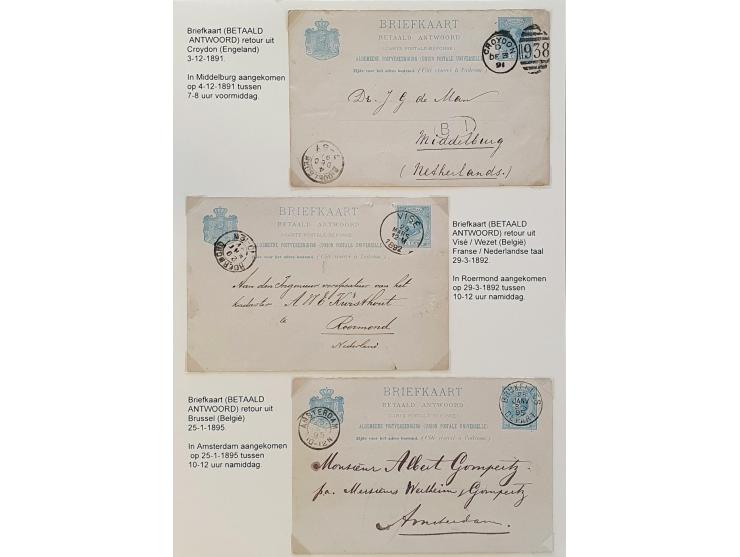 Briefkaart (BETAALD
ANTWOORD) retour uit
Croydon (Engeland)
3-12-1891.
In Middelburg aangekomen
op 4-12-1891 tussen
7-8 uur voormiddag.
BRIEFKAART
BETAALD ANTWOORD
(CARTE POSTALE-RÉPONSE)
ALGEMEENE POSTVEREENIGING (UNION POSTALE UNIVERSELLE)
Zijde voor het adres bestemd. (Côté réservé à l'adresse.)
CROYDON
DE 3
91
938
Dr. J. G. de Man
B 1
Middelburg
(Netherlands.)
BRIEFKAART
BETAALD ANTWOORD
(CARTE POSTALE-RÉPONSE)
ALGEMEENE POSTVEREENIGING (UNION POSTALE UNIVERSELLE)
Zijde voor het adres bestemd. (Côté réservé à l'adresse.)
VISÉ
29
MARS
1892
ROERMOND
Aan den Ingenieur verificateur van het
kadaster A W E Kwisthout
te
Roermond
Nederland
Briefkaart (BETAALD
ANTWOORD) retour uit
Visé / Wezet (België)
Franse / Nederlandse taal
29-3-1892.
In Roermond aangekomen
op 29-3-1892 tussen
10-12 uur namiddag.
Briefkaart (BETAALD
ANTWOORD) retour uit
Brussel (België)
25-1-1895.
In Amsterdam aangekomen
op 25-1-1895 tussen
10-12 uur namiddag.
BRIEFKAART
BETAALD ANTWOORD
(CARTE POSTALE-RÉPONSE)
ALGEMEENE POSTVEREENIGING (UNION POSTALE UNIVERSELLE)
Zijde voor het adres bestemd. (Côté réservé à l'adresse.)
BRUXELLES
25
JANV
95
DEPART
AMSTERDAM
95
10-12N
Monsieur Albert Gompertz
pa. Messieurs Wertheim & Gompertz
Amsterdam.